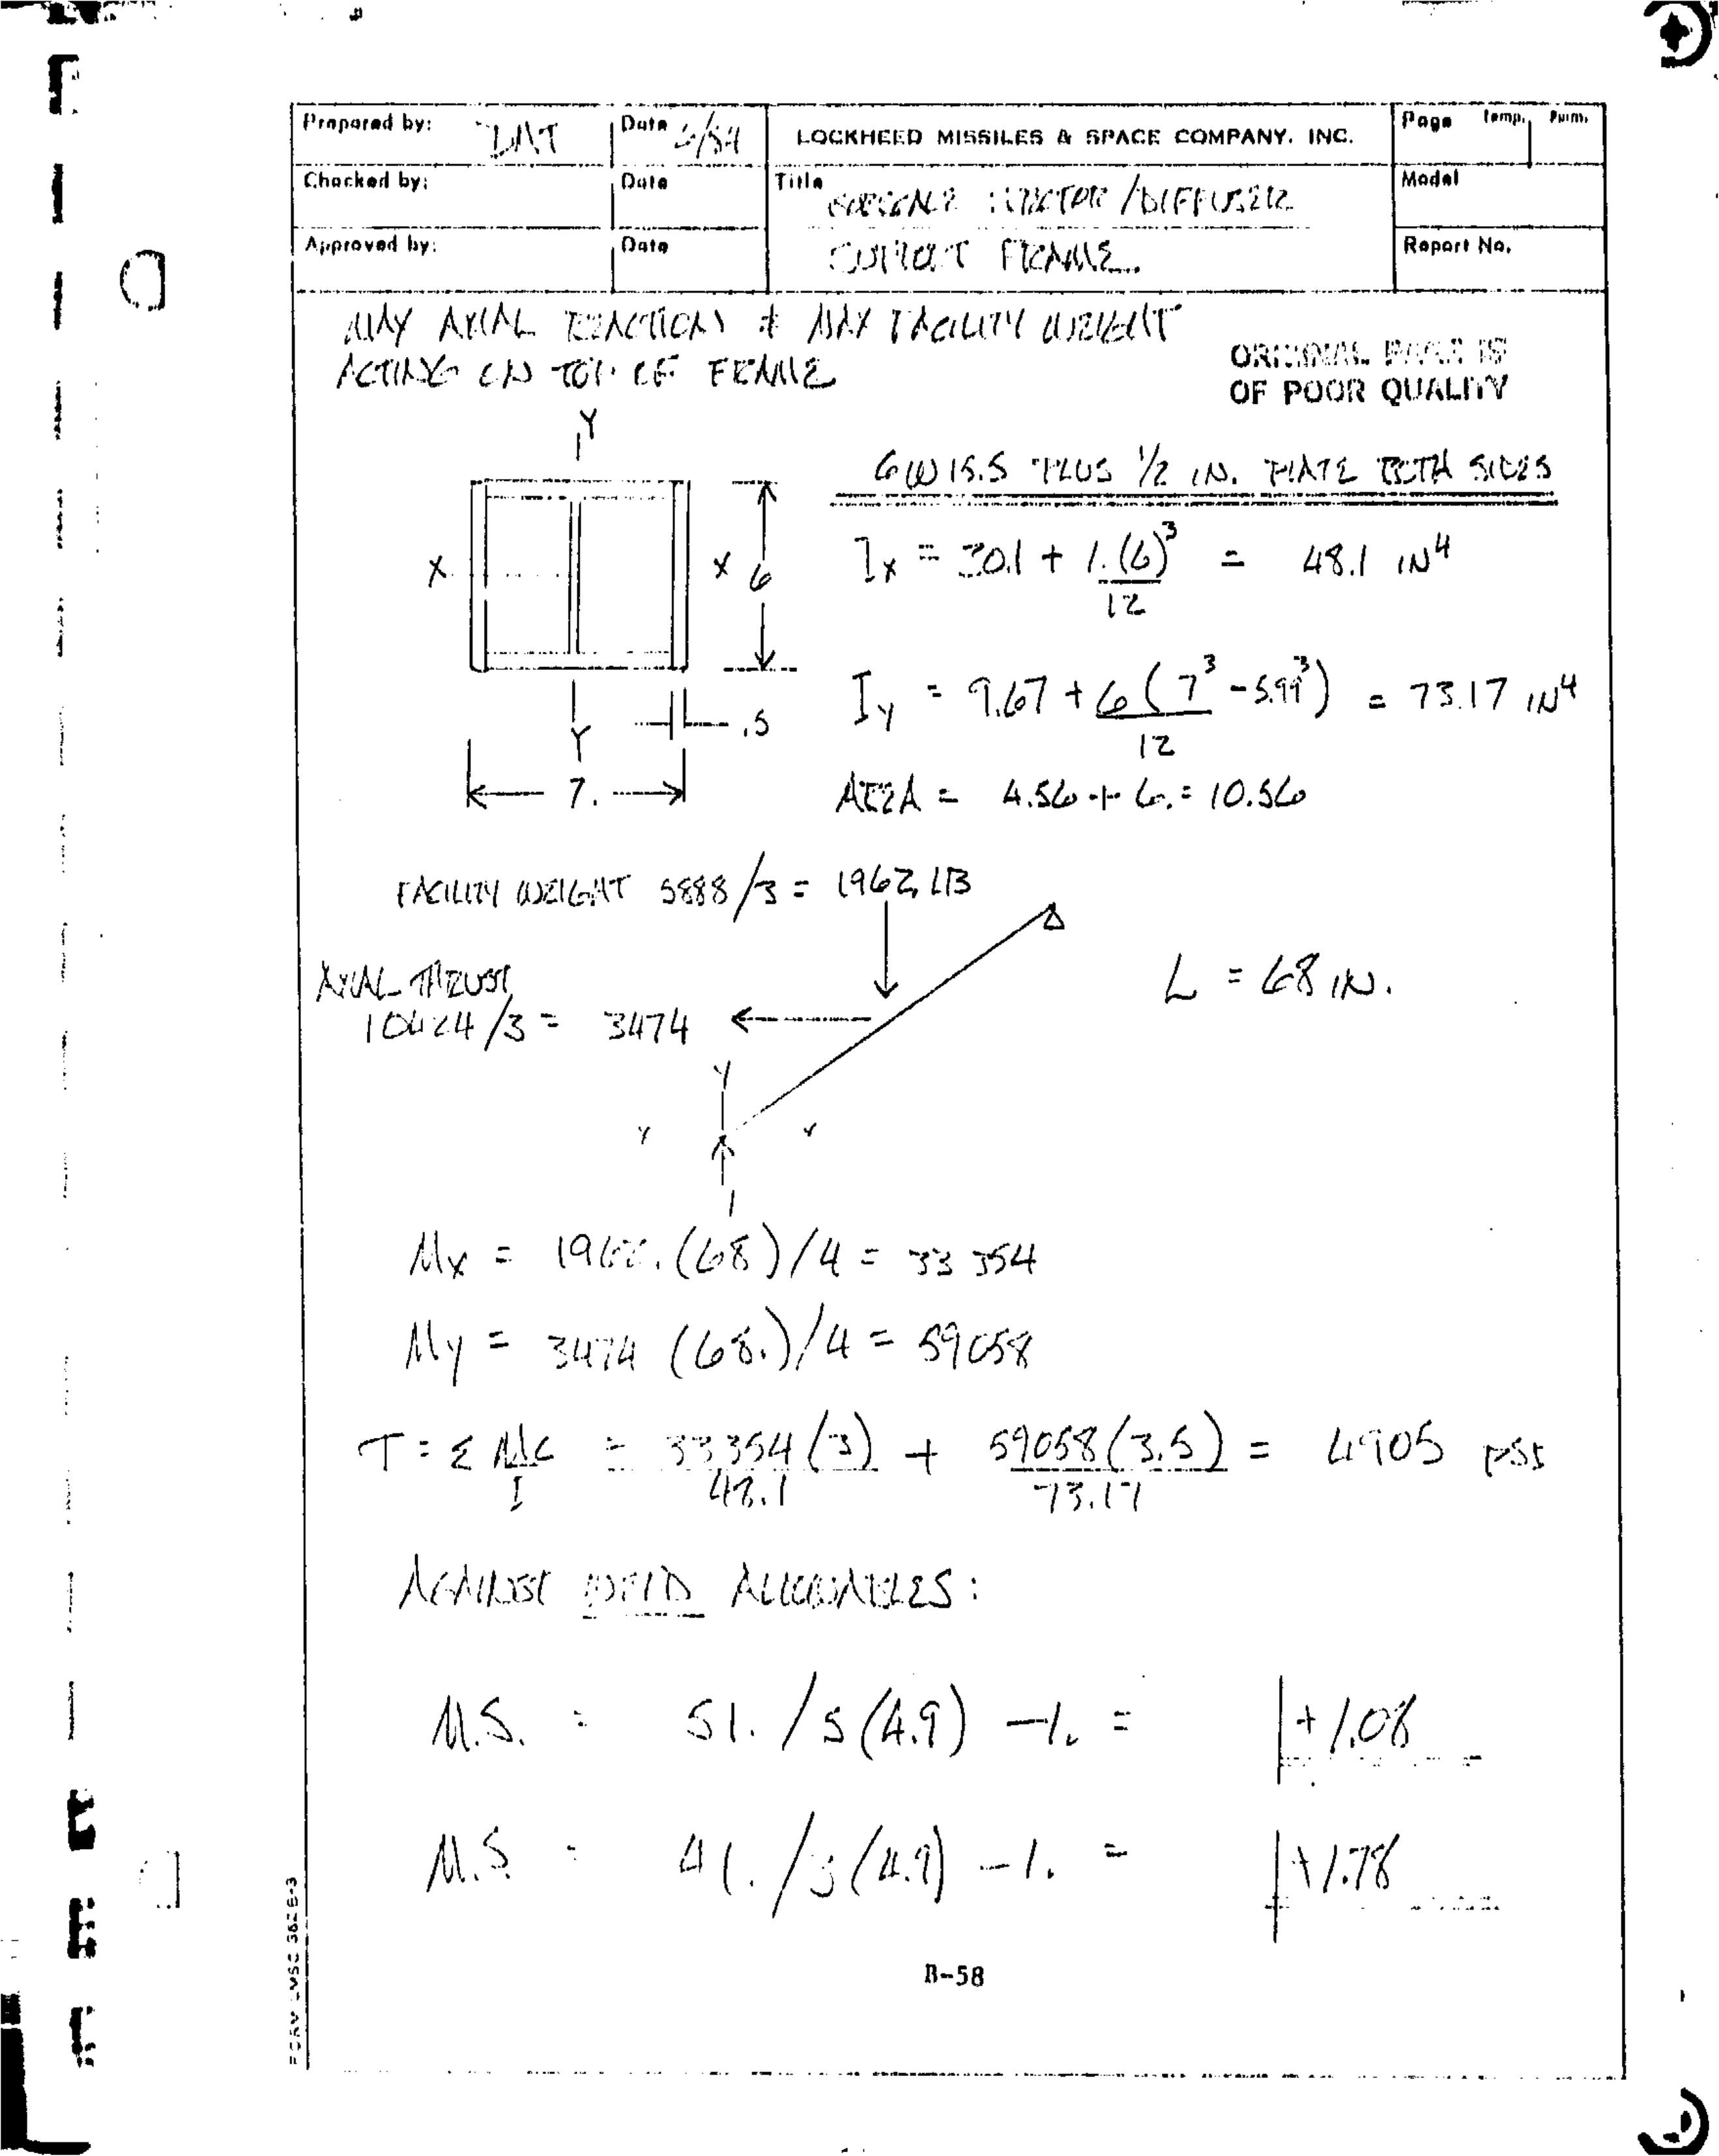 Prepared by: DAT Date 6/84 LOCKHEED MISSILES & SPACE COMPANY, INC. Page Temp. Perm.
Checked by: Date Title /DIFFUSER Model
Approved by: Date SUPPORT FRAME Report No.
MAX AXIAL REACTION & MAX FACILITY WEIGHT
ACTING ON TOP OF FRAME
ORIGINAL PAGE IS
OF POOR QUALITY
Y
6W15.5 PLUS 1/2 IN. PLATE BOTH SIDES
X X 6
Ix = 30.1 + 1.(6)³/12 = 48.1 IN⁴
Iy = 9.67 + 6(7³ - 5.99³)/12 = 73.17 IN⁴
Y .5
7.
AREA = 4.56 + 6. = 10.56
FACILITY WEIGHT 5888/3 = 1962 LB
L = 68 IN.
AXIAL THRUST
10424/3 = 3474
Y
Mx = (68)/4 = 33 354
My = 3474 (68.)/4 = 59058
T = Σ Mc/I = 33354(3)/48.1 + 59058(3.5)/73.17 = 4905 psi
AGAINST WELD ALLOWABLES:
M.S. = 51./5(4.9) -1. = +1.08
M.S. = 41./3(4.9) -1. = +1.78
B-58
FORM LMSC 3626-3